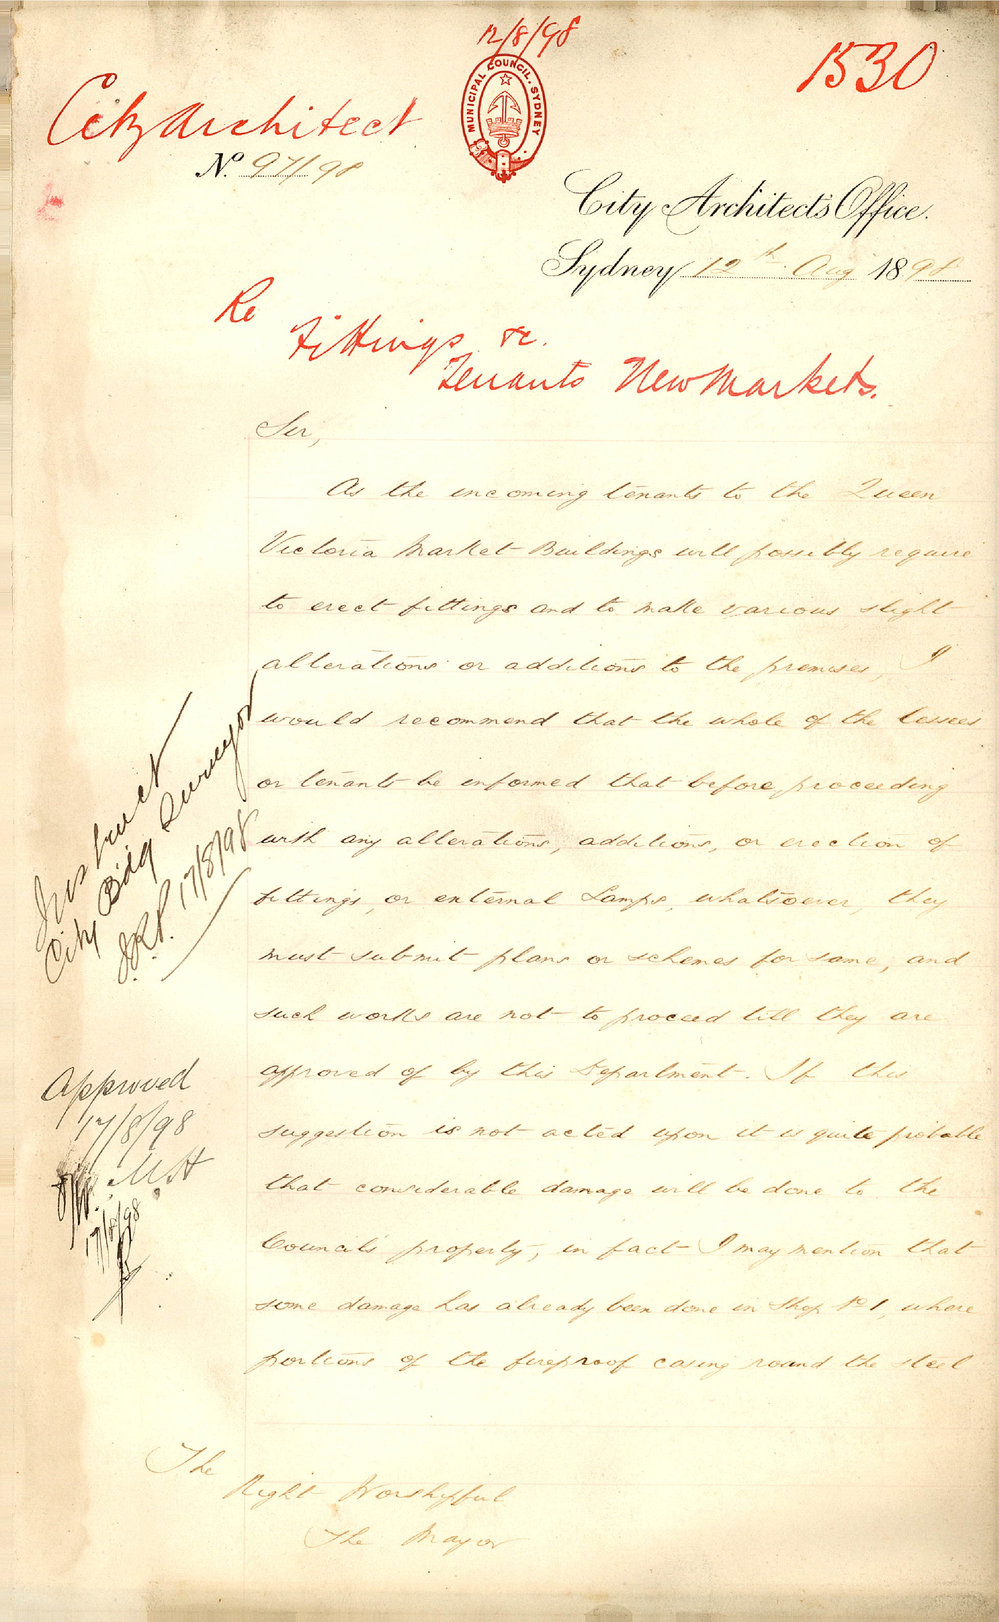 12/8/98
1530
City Architect
MUNICIPAL COUNCIL. SYDNEY
No. 97/98
City Architect's Office.
Sydney 12th Aug 1898
Re
Fittings &c.
Tenants New Markets.
Sir,
As the incoming tenants to the Queen
Victoria Market Buildings will possibly require
to erect fittings and to make various slight
alterations or additions to the premises, I
would recommend that the whole of the lessees
or tenants be informed that before proceeding
with any alterations, additions, or erection of
fittings, or external Lamps, whatsoever, they
must submit plans or schemes for same, and
such works are not to proceed till they are
approved of by this Department. If this
suggestion is not acted upon it is quite probable
that considerable damage will be done to the
Council's property, in fact I may mention that
some damage has already been done in Shop No 1, where
portions of the fireproof casing round the steel
Instruct
City Bldg Surveyor
17/8/98
Approved
17/8/98
M.H
17/8/98
The
Right Worshipful
The Mayor